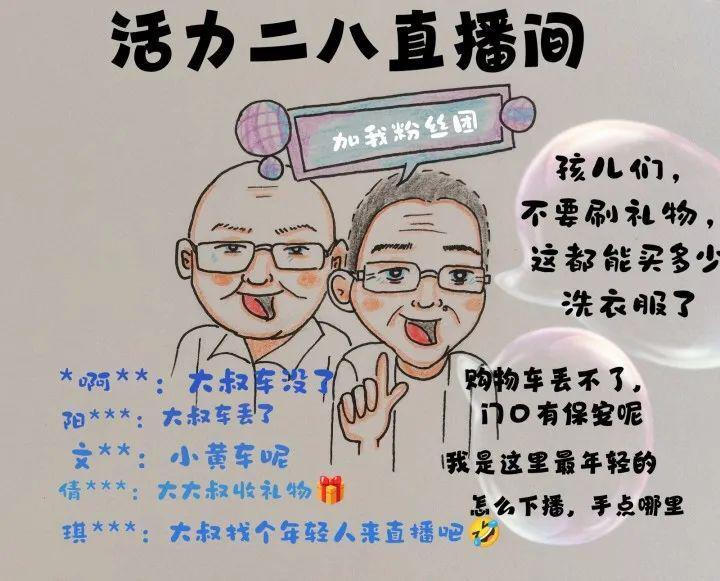 活力二八直播间
加我粉丝团
孩儿们，
不要刷礼物，
这都能买多少
洗衣服了
*啊**：大叔车没了
阳***：大叔车丢了
文**：小黄车呢
倩***：大大叔收礼物🎁
琪***：大叔找个年轻人来直播吧🤣
购物车丢不了，
门口有保安呢
我是这里最年轻的
怎么下播，手点哪里